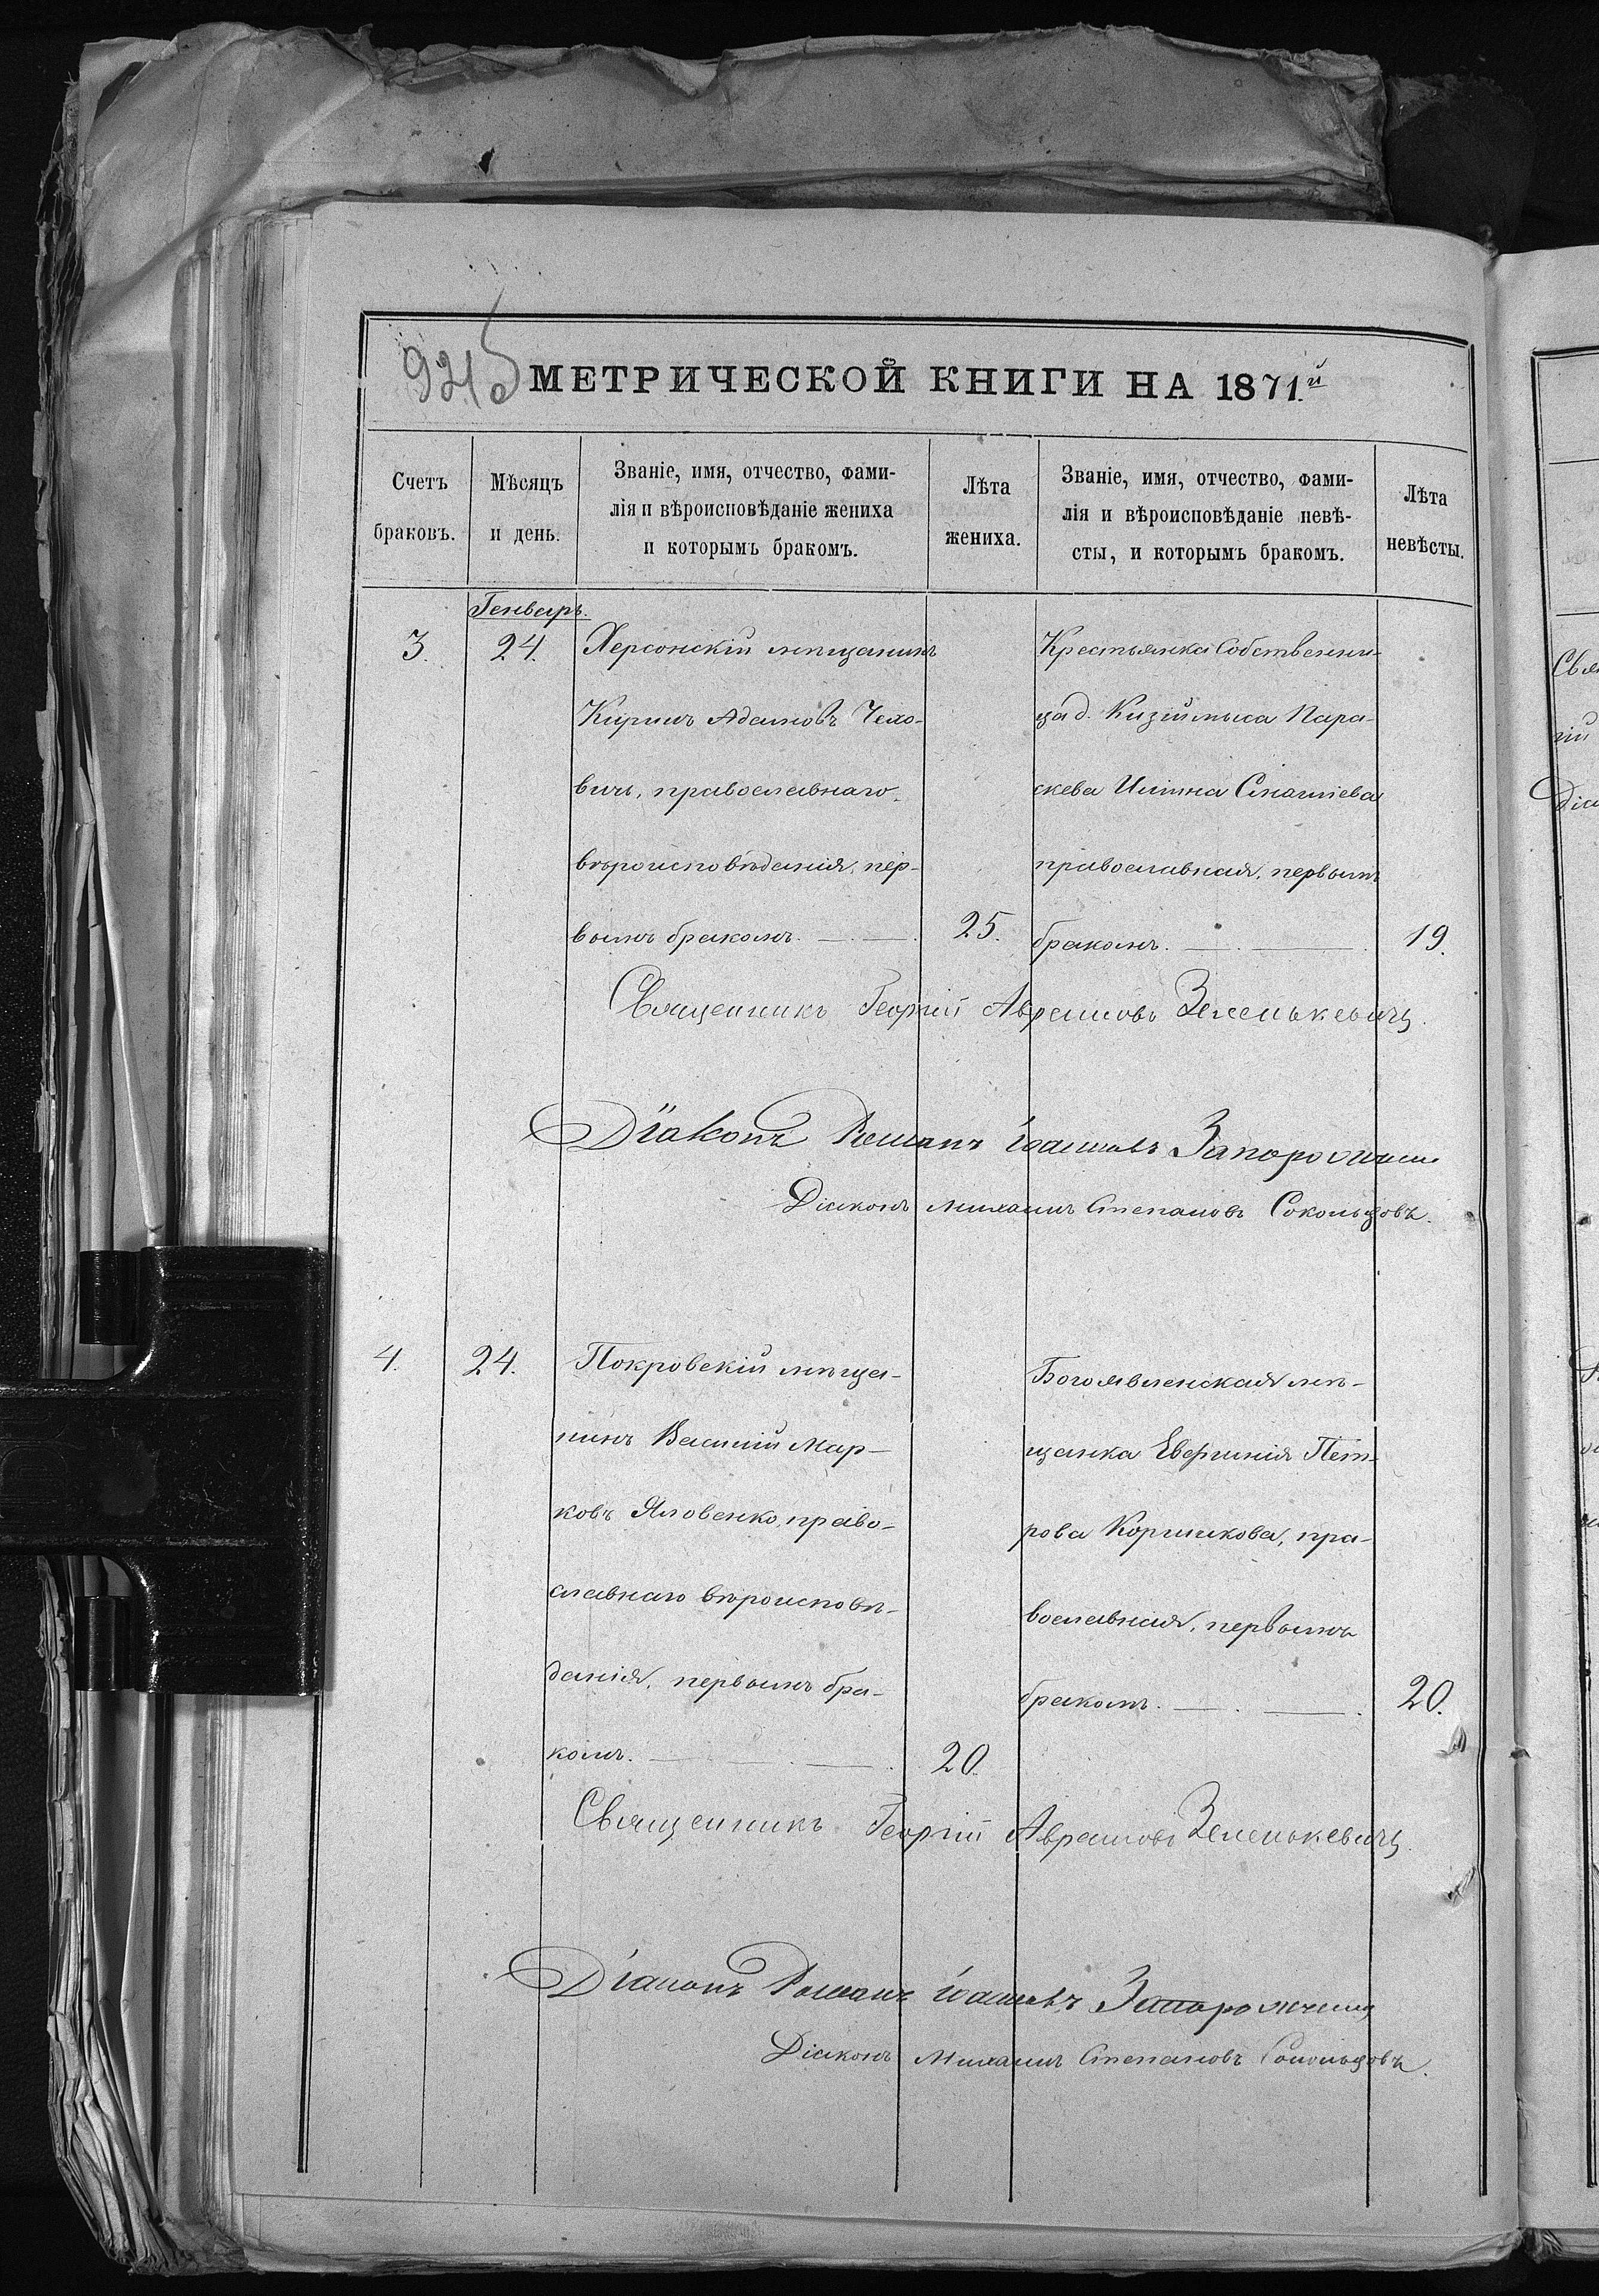 МЕТРИЧЕСКОЙ КНИГИ НА 1871.й
Счетъ браковъ.
Мѣсяцъ и день.
Званіе, имя, отчество, фами-
лія и вѣроисповѣданіе жениха
и которымъ бракомъ.
Лѣта жениха.
Званіе, имя, отчество, фами-
лія и вѣроисповѣданіе невѣ-
сты, и которымъ бракомъ.
Лѣта невѣсты.
Генварь.
3. 24.
Херсонскій мѣщанинъ
Кирилъ Адамовъ Чехо-
вичъ, православнаго
вѣроисповѣданія, пер-
вымъ бракомъ. 25.
Крестьянка Собственни-
ца д. Кизіймыса Пара-
скева Ильина
православная, первымъ
бракомъ. 19.
Священникъ Георгій Аврамовъ Зеленькевичъ.
Діаконъ Романъ Іоанновъ
Діаконъ Михаилъ Степановъ Сокольцовъ.
4. 24.
Покровскій мѣща-
нинъ Василій Мар-
ковъ Яловенко, право-
славнаго вѣроисповѣ-
данія, первымъ бра-
комъ. 20.
Богоявленская мѣ-
щанка Евфимія Пет-
рова Коршикова, пра-
вославная, первымъ
бракомъ. 20.
Священникъ Георгій Аврамовъ Зеленькевичъ
Діаконъ Романъ Іоанновъ
Діаконъ Михаилъ Степановъ Сокольцовъ.